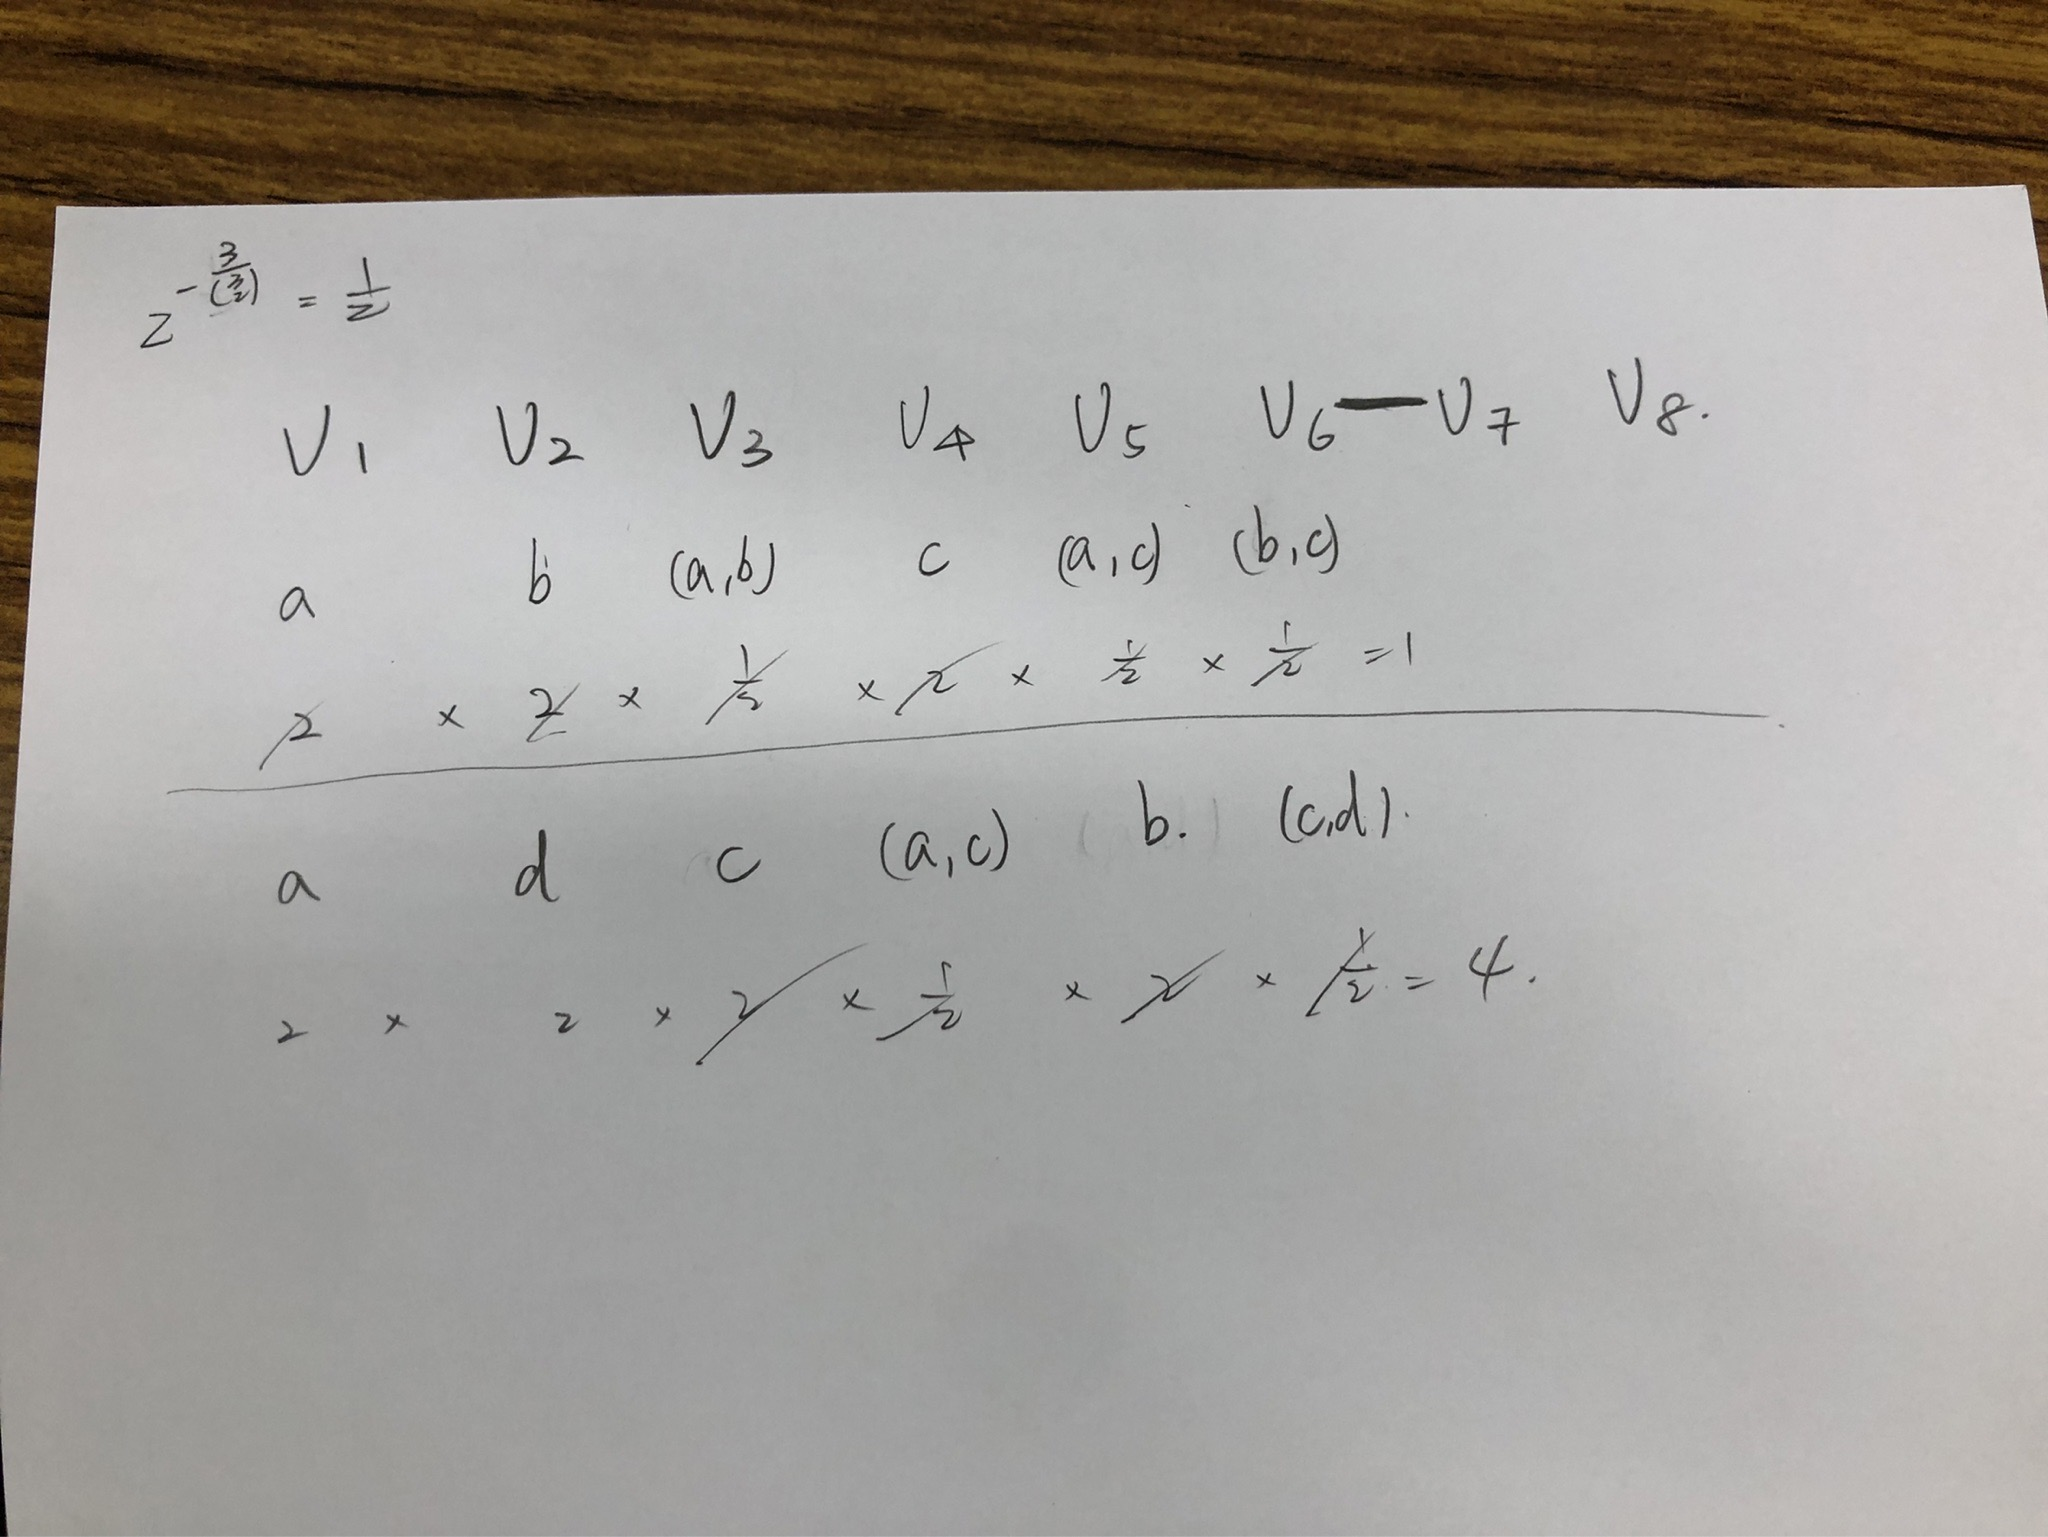 2^{-\frac{3}{(\frac{3}{2})}} = \frac{1}{2}
V₁ V₂ V₃ V₄ V₅ V₆ — V₇ V₈.
a b (a,b) c (a,c) (b,c)
2 × 2 × 1/2 × 2 × 1/2 × 1/2 = 1
a d c (a,c) b. (c,d).
2 × 2 × 2 × 1/2 × 2 × 1/2 = 4.